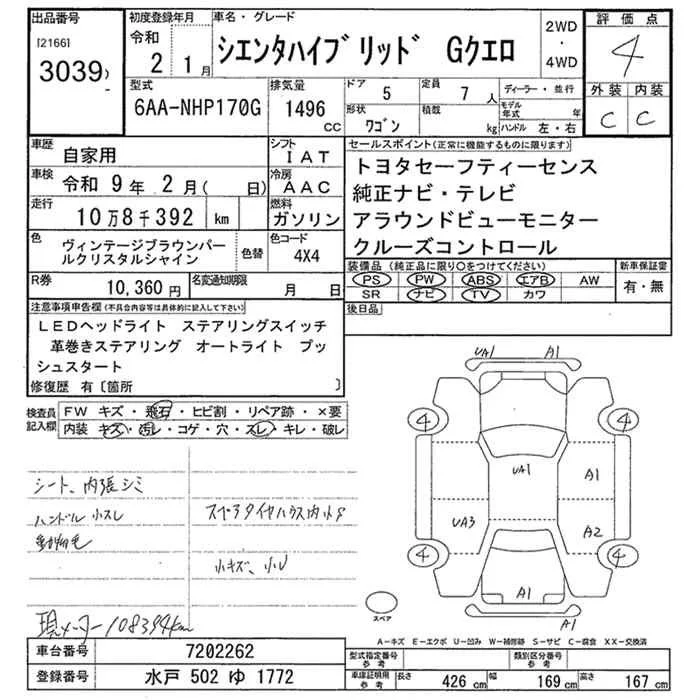 出品番号
[2166]
3039)
初度登録年月
令和
2 1月
車名・グレード
シエンタハイブリッド Gクエロ
2WD
・
4WD
評価点
4
外装 内装
C C
型式
6AA-NHP170G
排気量
1496
CC
ドア
5
定員
7 人
ディーラー・並行
モデル年式 年
形状
ワゴン
積載
kg
ハンドル 左・右
車歴
自家用
シフト
IAT
車検
令和 9年 2月( 日)
冷房
AAC
走行
10万8千392 km
燃料
ガソリン
色
ヴィンテージブラウンパー
ルクリスタルシャイン
色替
色コード
4X4
R券
10,360円
名変通知期限
月 日
セールスポイント(正常に機能するものに限ります)
トヨタセーフティーセンス
純正ナビ・テレビ
アラウンドビューモニター
クルーズコントロール
装備品(純正品に限り○をつけてください)
PS PW ABS エアB AW
SR ナビ TV カワ
新車保証書
有・無
後日品
注意事項申告欄(不具合内容等は具体的に記入して下さい)
LEDヘッドライト ステアリングスイッチ
革巻きステアリング オートライト プッ
シュスタート
修復歴 有〔箇所 〕
検査員
記入欄
FW キズ・飛石・ヒビ割・リペア跡・×要
内装 キズ・汚レ・コゲ・穴・スレ・キレ・破レ
シート、内張シミ
ハンドル小スレ
動物毛
スペアタイヤハウス内小サ
小キズ、小U
現メーター108394km
UA1 A1
4 4
UA1 A1
UA3 A2
4 4
A1
A1
スペア
A-キズ E-エクボ U-凹み W-補修跡 S-サビ C-腐食 XX-交換済
車台番号
7202262
登録番号
水戸 502 ゆ 1772
型式指定番号
参考
類別区分番号
参考
車庫証明用
参考
長さ 426 cm
幅 169 cm
高さ 167 cm